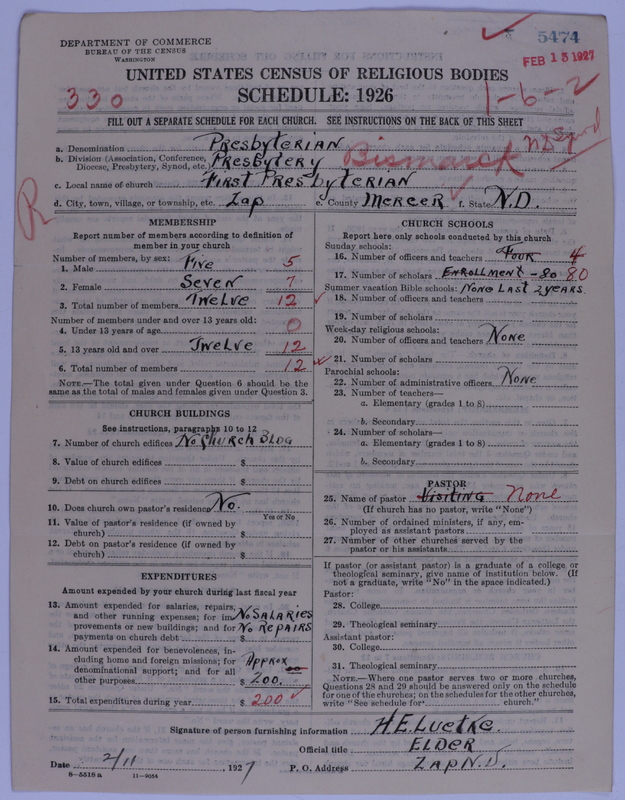 DEPARTMENT OF COMMERCE
BUREAU OF THE CENSUS
WASHINGTON
5474
FEB 15 1927
UNITED STATES CENSUS OF RELIGIOUS BODIES
330
SCHEDULE: 1926
1-6-2
FILL OUT A SEPARATE SCHEDULE FOR EACH CHURCH. SEE INSTRUCTIONS ON THE BACK OF THIS SHEET
a. Denomination Presbyterian
b. Division (Association, Conference, Diocese, Presbytery, Synod, etc.) Presbytery Bismarck N.D. Synd
c. Local name of church First Presbyterian
d. City, town, village, or township, etc. Zap e. County Mercer f. State N.D.
R
MEMBERSHIP
Report number of members according to definition of
member in your church
Number of members, by sex:
1. Male Five 5
2. Female Seven 7
3. Total number of members Twelve 12
Number of members under and over 13 years old:
4. Under 13 years of age 0
5. 13 years old and over Twelve 12
6. Total number of members 12
NOTE.—The total given under Question 6 should be the
same as the total of males and females given under Question 3.
CHURCH BUILDINGS
See instructions, paragraphs 10 to 12
7. Number of church edifices No Church Bldg
8. Value of church edifices $
9. Debt on church edifices $
10. Does church own pastor's residence? No.
Yes or No
11. Value of pastor's residence (if owned by
church) $
12. Debt on pastor's residence (if owned by
church) $
EXPENDITURES
Amount expended by your church during last fiscal year
13. Amount expended for salaries, repairs,
and other running expenses; for im- No Salaries
provements or new buildings; and for No Repairs
payments on church debt $
14. Amount expended for benevolences, in-
cluding home and foreign missions; for Approx
denominational support; and for all
other purposes $ 200.00
15. Total expenditures during year $ 200
CHURCH SCHOOLS
Report here only schools conducted by this church
Sunday schools:
16. Number of officers and teachers Four 4
17. Number of scholars Enrollment - 80 80
Summer vacation Bible schools: None Last 2 years
18. Number of officers and teachers
19. Number of scholars
Week-day religious schools:
20. Number of officers and teachers None
21. Number of scholars
Parochial schools:
22. Number of administrative officers None
23. Number of teachers—
a. Elementary (grades 1 to 8)
b. Secondary
24. Number of scholars—
a. Elementary (grades 1 to 8)
b. Secondary
PASTOR
25. Name of pastor Visiting None
(If church has no pastor, write "None")
26. Number of ordained ministers, if any, em-
ployed as assistant pastors
27. Number of other churches served by the
pastor or his assistants
If pastor (or assistant pastor) is a graduate of a college or
theological seminary, give name of institution below. (If
not a graduate, write "No" in the space indicated.)
Pastor:
28. College
29. Theological seminary
Assistant pastor:
30. College
31. Theological seminary
NOTE.—Where one pastor serves two or more churches,
Questions 28 and 29 should be answered only on the schedule
for one of the churches; on the schedules for the other churches,
write "See schedule for church."
Signature of person furnishing information H.E. Luetke.
Official title Elder
Date 2/11, 1927 P. O. Address Zap N.D.
8-5518 a 11-9054